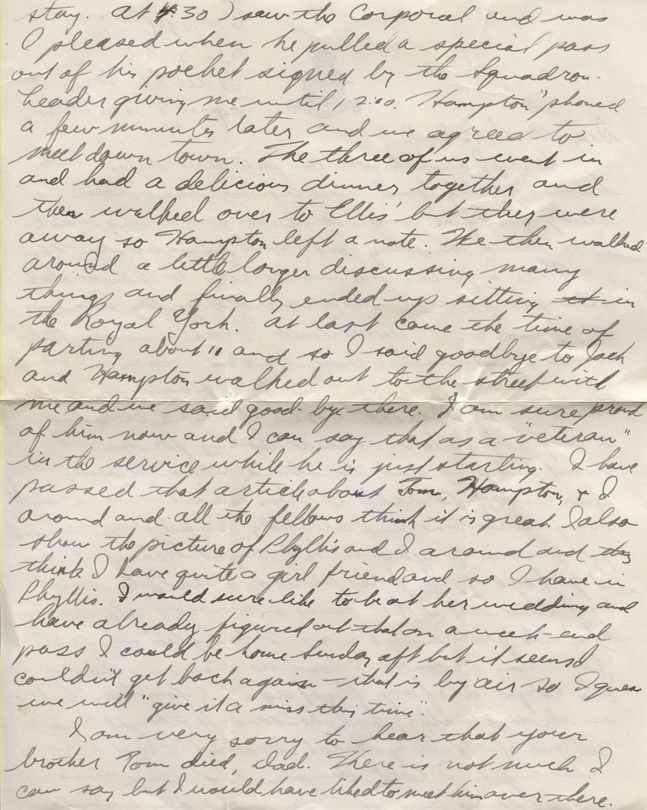 stay. At 4:30 I saw the Corporal and was
I pleased when he pulled a special pass
out of his pocket signed by the Squadron
Leader giving me until 12:00. Hampton 'phoned
a few minutes later and we agreed to
meet down town. The three of us went in
and had a delicious dinner together and
then walked over to Ellis' but they were
away so Hampton left a note. We then walked
around a little longer discussing many
things and finally ended up sitting in
the Royal York. At last came the time of
parting about 11 and so I said goodbye to Jack
and Hampton walked out to the street with
me and we said good-bye there. I am sure proud
of him now and I can say that as a "veteran"
in the service while he is just starting. I have
passed that article about Tom, Hampton, & I
around and all the fellows think it is great. I also
show the picture of Phyllis and I around and they
think I have quite a girl friend and so I have in
Phyllis. I would sure like to be at her wedding and
have already figured out that on a week-end
pass I could be home Sunday aft but it seems I
couldn't get back again - that is by air so I guess
we will "give it a miss this time".
I am very sorry to hear that your
brother Tom died, Dad. There is not much I
can say but I would have liked to meet him over there.